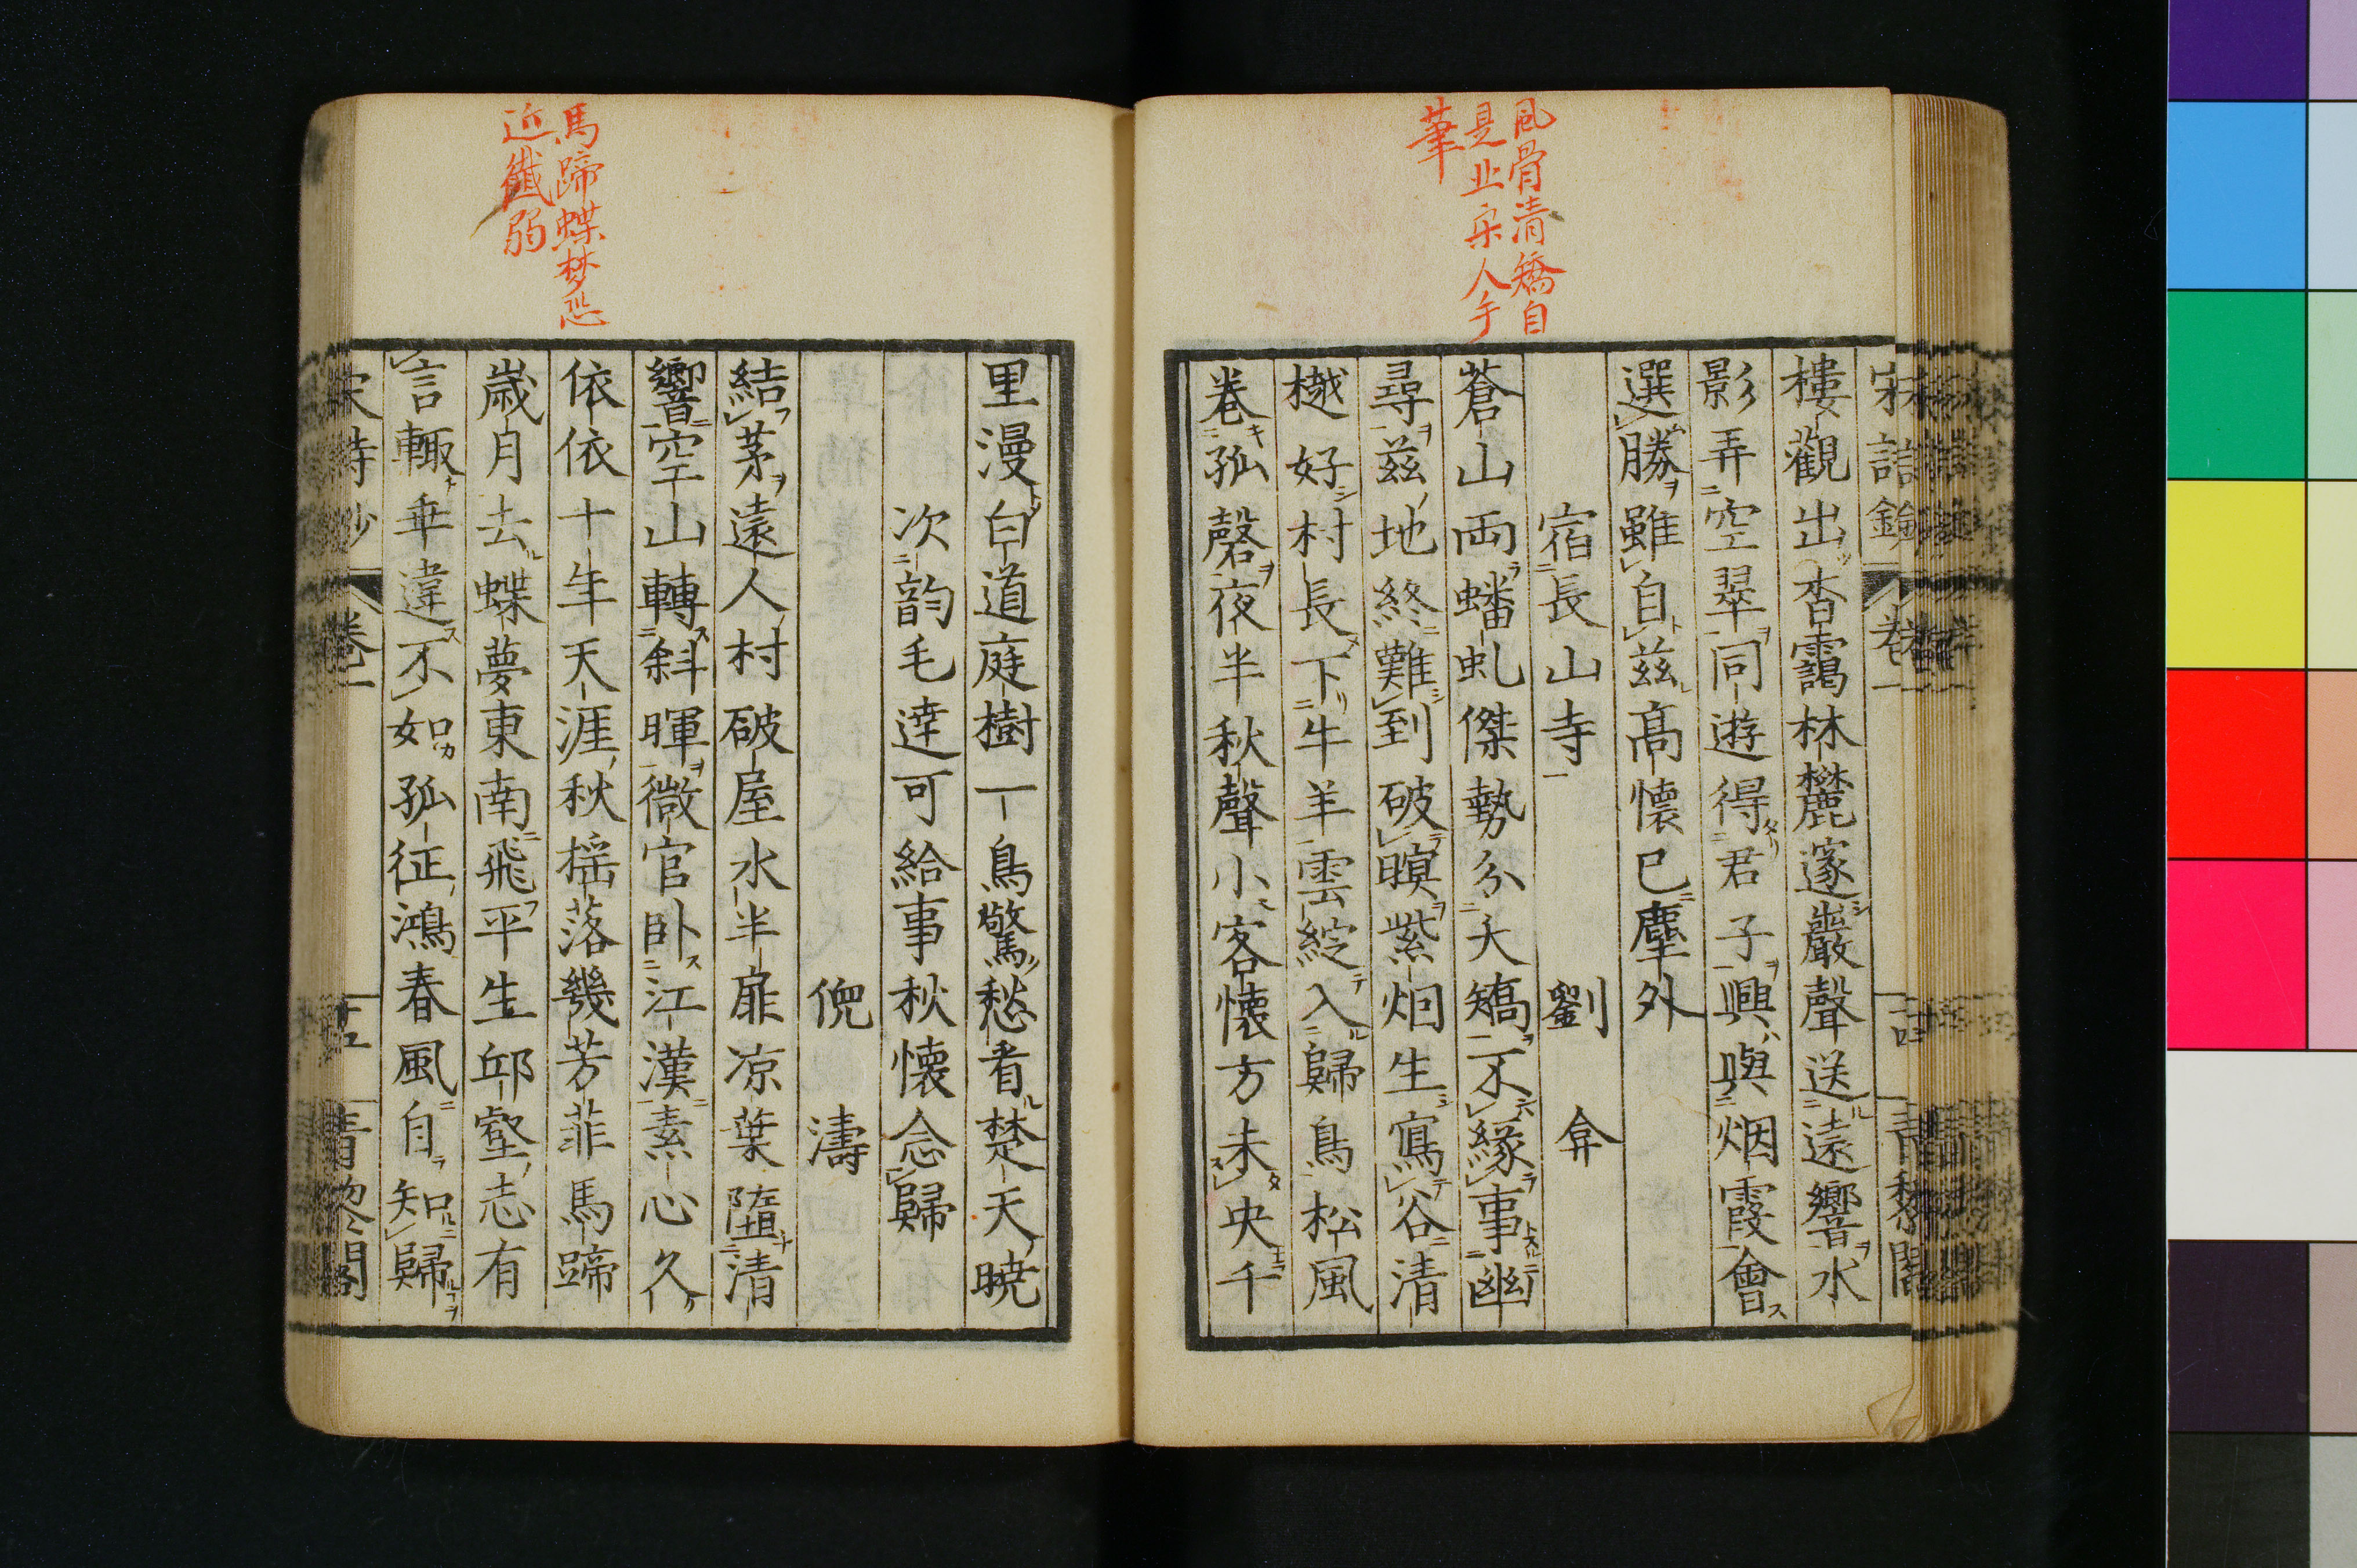 風骨清矯自
是北宋人手
筆
樓觀出杳靄林麓邃巖聲送遠響水
影弄空翠同遊得君子興與烟霞會
選勝雖自茲高懷已塵外
宿長山寺 劉弇
蒼山兩蟠虬傑勢分夭矯不緣事幽
尋茲地終難到破暝紫烟生寫谷清
樾好村長下牛羊雲綻入歸鳥松風
卷孤磬夜半秋聲小客懷方未央千
馬蹄蝶梦恐
近纖弱
里漫白道庭樹一鳥驚愁看楚天曉
次韵毛達可給事秋懷念歸
倪濤
結茅遠人村破屋水半扉凉葉墮清
響空山轉斜暉微官卧江漢素心久
依依十年天涯秋揺落幾芳菲馬蹄
歳月去蝶夢東南飛平生邱壑志有
言輙乖違不如孤征鴻春風自知歸
宋詩鈔 卷一 十五 青黎閣